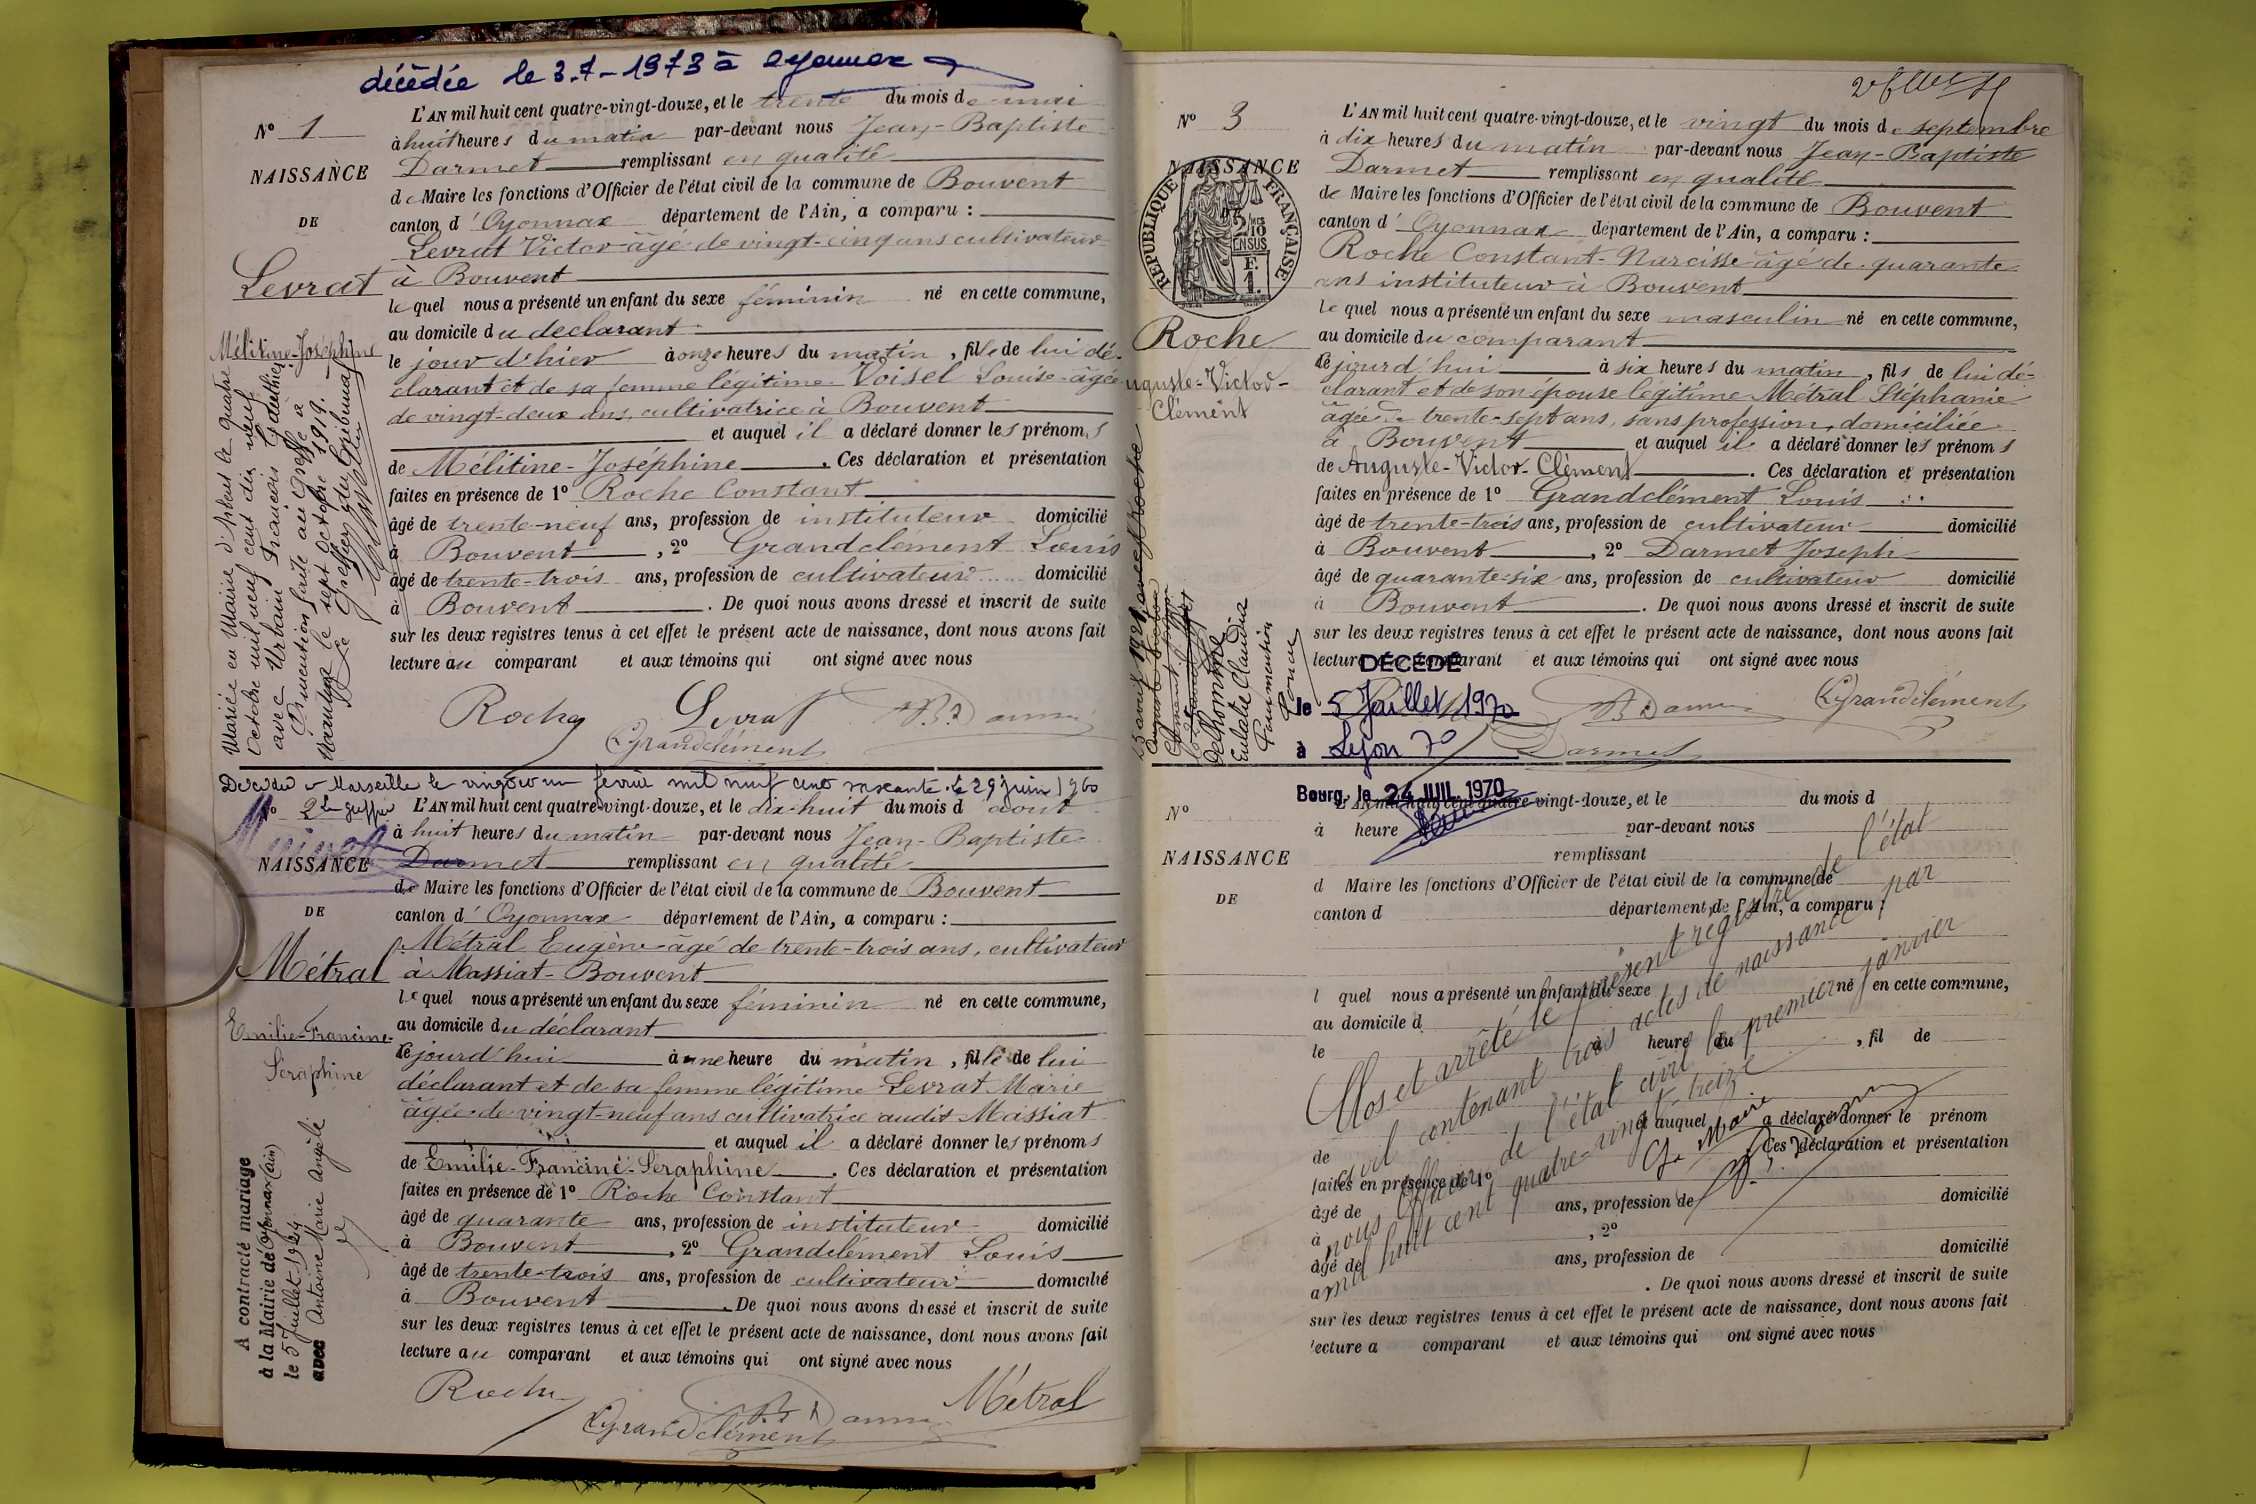 décédée le 3-7-1973 à Oyonnax
N° 1
NAISSANCE
DE
Levrat
Mélitine-Joséphine
L'AN mil huit cent quatre-vingt-douze, et le trente du mois de mai
à huit heures du matin par-devant nous Jean-Baptiste
Darmet remplissant en qualité
de Maire les fonctions d'Officier de l'état civil de la commune de Bouvent
canton d'Oyonnax département de l'Ain, a comparu :
Levrat Victor âgé de vingt-cinq ans cultivateur
à Bouvent
lequel nous a présenté un enfant du sexe féminin né en cette commune,
au domicile du déclarant
le jour d'hier à onze heures du matin, fille de lui dé-
clarant et de sa femme légitime Voisel Louise âgée
de vingt-deux ans, cultivatrice à Bouvent
et auquel il a déclaré donner les prénoms
de Mélitine-Joséphine. Ces déclaration et présentation
faites en présence de 1° Roche Constant
âgé de trente-neuf ans, profession de instituteur domicilié
à Bouvent, 2° Grandclément Louis
âgé de trente-trois ans, profession de cultivateur domicilié
à Bouvent. De quoi nous avons dressé et inscrit de suite
sur les deux registres tenus à cet effet le présent acte de naissance, dont nous avons fait
lecture au comparant et aux témoins qui ont signé avec nous
Roche Levrat
Grandclément
Mariée en Mairie d' le quatre
Octobre mil neuf cent dix neuf
avec Urbain François
mention faite au greffe à
Nantua le sept Octobre 1919.
Le Greffier du Tribunal
Décédée à Marseille le vingt un février mil neuf cent soixante. le 29 juin 1960
N° 2 Le greffier
NAISSANCE
DE
Métral
Emilie-Francine-
Seraphine
L'AN mil huit cent quatre-vingt-douze, et le dix-huit du mois d'août
à huit heures du matin par-devant nous Jean-Baptiste
Darmet remplissant en qualité
de Maire les fonctions d'Officier de l'état civil de la commune de Bouvent
canton d'Oyonnax département de l'Ain, a comparu :
Métral Eugène âgé de trente-trois ans, cultivateur
à Massiat-Bouvent
lequel nous a présenté un enfant du sexe féminin né en cette commune,
au domicile du déclarant
cejourd'hui à une heure du matin, fille de lui
déclarant et de sa femme légitime Levrat Marie
âgée de vingt-neuf ans cultivatrice audit Massiat
et auquel il a déclaré donner les prénoms
de Emilie-Francine-Seraphine. Ces déclaration et présentation
faites en présence de 1° Roche Constant
âgé de quarante ans, profession de instituteur domicilié
à Bouvent, 2° Grandclément Louis
âgé de trente-trois ans, profession de cultivateur domicilié
à Bouvent. De quoi nous avons dressé et inscrit de suite
sur les deux registres tenus à cet effet le présent acte de naissance, dont nous avons fait
lecture au comparant et aux témoins qui ont signé avec nous
Roche Métral
Grandclément
A contracté mariage
à la Mairie de Oyonnax (Ain)
le 5 Juillet 1924
avec Antoine Marie Angèle
N° 3
NAISSANCE
RÉPUBLIQUE FRANÇAISE
2/10
EN SUS
F.
1.
Roche
Auguste-Victor-
Clément
L'AN mil huit cent quatre-vingt-douze, et le vingt du mois de septembre
à dix heures du matin par-devant nous Jean-Baptiste
Darmet remplissant en qualité
de Maire les fonctions d'Officier de l'état civil de la commune de Bouvent
canton d'Oyonnax département de l'Ain, a comparu :
Roche Constant-Narcisse âgé de quarante
ans instituteur à Bouvent
lequel nous a présenté un enfant du sexe masculin né en cette commune,
au domicile du comparant
cejourd'hui à six heures du matin, fils de lui dé-
clarant et de son épouse légitime Métral Stéphanie
âgée de trente-sept ans, sans profession, domiciliée
à Bouvent et auquel il a déclaré donner les prénoms
de Auguste-Victor-Clément. Ces déclaration et présentation
faites en présence de 1° Grandclément Louis
âgé de trente-trois ans, profession de cultivateur domicilié
à Bouvent, 2° Darmet Joseph
âgé de quarante-six ans, profession de cultivateur domicilié
à Bouvent. De quoi nous avons dressé et inscrit de suite
sur les deux registres tenus à cet effet le présent acte de naissance, dont nous avons fait
lecture au comparant et aux témoins qui ont signé avec nous
Grandclément
Darmet
DÉCÉDÉ
le 5 Juillet 1970
à Lyon 7e
Bourg, le 24 JUIL. 1970
Delhomme
Eulalie Claudia
Pour mention
N°
NAISSANCE
DE
L'AN mil huit cent quatre-vingt-douze, et le du mois d
à heure par-devant nous
remplissant
d Maire les fonctions d'Officier de l'état civil de la commune de
canton d département de l'Ain, a comparu :
l quel nous a présenté un enfant du sexe né en cette commune,
au domicile d
le à heure du , fil de
et auquel a déclaré donner le prénom
de Ces déclaration et présentation
faites en présence de 1°
âgé de ans, profession de domicilié
à , 2°
âgé de ans, profession de domicilié
à . De quoi nous avons dressé et inscrit de suite
sur les deux registres tenus à cet effet le présent acte de naissance, dont nous avons fait
lecture a comparant et aux témoins qui ont signé avec nous
Clos et arrêté le présent registre de l'état
civil contenant trois actes de naissance par
nous officier de l'état civil le premier janvier
mil huit cent quatre-vingt-treize
Le Maire